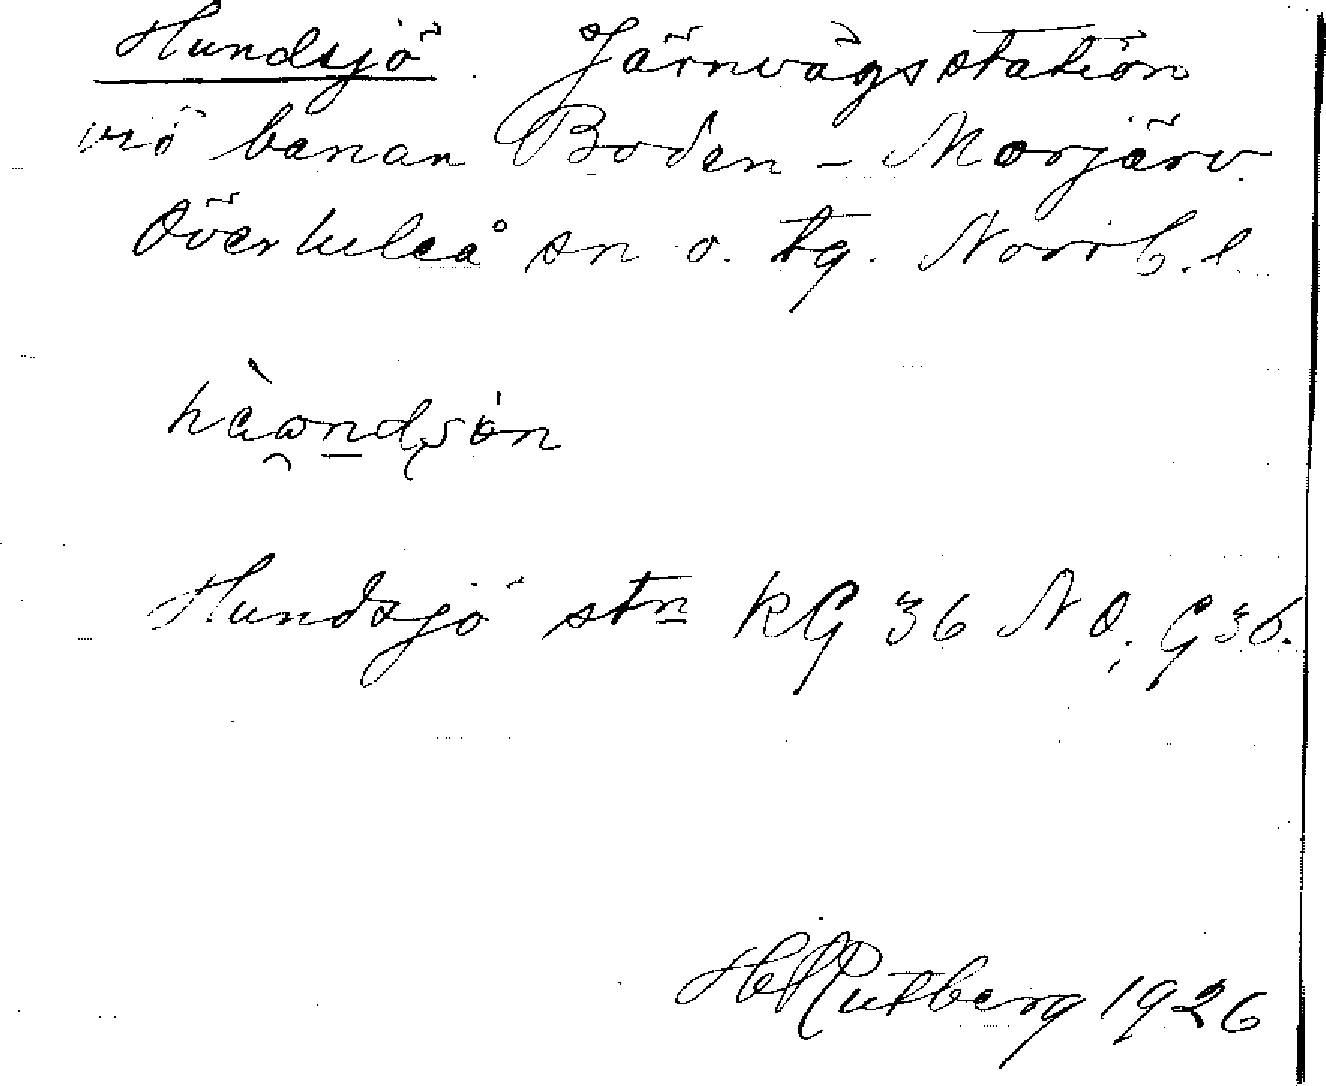 Hundsjö. Järnvägsstation
vid banan Boden – Morjärv.
Överluleå sn o. tg. Norrb. l.
Hundsjö stn KG 36 NO. G36.
H Rutberg 1926